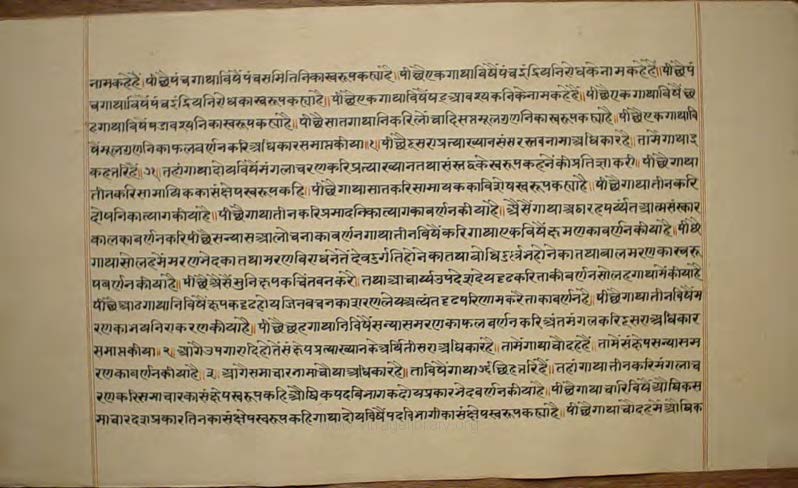 नामकहेहैं॥पीछैपंचगाथाविषैंपंचसमितिनिकास्वरूपकह्याहै॥पीछैएकगाथाविषैंपंचइंद्रियनिरोधकेनामकहेहैं॥पीछैपं
चगाथाविषैंपंचइंद्रियनिरोधकास्वरूपकह्याहै॥पीछैएकगाथाविषैंषडआवश्यकनिकेनामकहेहैं॥पीछैएकगाथाविषैं
हगाथाविषैंषडावश्यनिकास्वरूपकह्याहै॥पीछैसातगाथानिकरिलोंचादिसप्तमूलगुणनिकास्वरूपकह्याहै॥पीछैएकगाथावि
षैंमूलगुणनिकाफलवर्णनकरिअधिकारसमाप्तकीया॥१॥पीछैदूसराप्रत्याख्यानसंस्तरस्तवनामाअधिकारहै॥तामैंगाथाइ
कहत्तरिहैं॥७१॥तहांगाथादोयविषैंमंगलाचरणकरिप्रत्याख्यानतथासंस्तरकेस्वरूपकहनेंकीप्रतिज्ञाकरी॥पीछैगाथा
तीनकरिसामायिककासंक्षेपस्वरूपकहि॥पीछैगाथासातकरिसामायककाविशेषस्वरूपकह्याहै॥पीछैगाथातीनकरि
दोषनिकात्यागकीयाहै॥पीछैगाथातीनकरिप्रमादनिकात्यागकावर्णनकीयाहै॥अैसैंगाथाअठारहपर्य्यंतआत्मसंस्कार
कालकावर्णनकरिपीछैसन्यासआलोचनाकावर्णनगाथातीनविषैंकरिगाथाएकविषैंक्षमणकावर्णनकीयाहै॥पीछै
गाथासोलहमैंमरणभेदकातथामरणविराधनेतैंदेवदुर्गतिहोनेकातथाबोधिदुर्लभहोनेकातथाबालमरणकास्वरू
पवर्णनकीयाहै॥पीछैअैसैंमुनिरूपकचिंतवनकरै॥तथाआचार्य्यउपदेशदेयदृढकरैताकीवर्णनसोलहगाथामैंकीयाहै
पीछैआठगाथानिविषैंक्षपकदृढहोयजिनवचनकाशरणलेयअत्यंतदृढपरिणामकरैताकावर्णनहै॥पीछैगाथातीनविषैंम
रणकाभयनिराकरणकीयाहै॥पीछैछहगाथानिविषैंसन्यासमरणकाफलवर्णनकरिअंतमंगलकरिदूसराअधिकार
समाप्तकीया॥२॥आगैउपगारादिहोतैंसंक्षेपप्रत्याख्यानकेअर्थितीसराअधिकारहै॥तामैंगाथाचौदहहै॥तामैंसंक्षेपसन्यासम
रणकावर्णनकीयाहै॥३॥आगैसमाचारनामाचोथाअधिकारहै॥ताविषैंगाथाछिहत्तरिहैं॥तहांगाथातीनकरिमंगलाच
रणकरिसमाचारकासंक्षेपस्वरूपकहिऔघिकपदविभागकदोयप्रकारभेदवर्णनकीयाहै॥पीछैगाथाचारिविषैंऔघिकस
माचारदशप्रकारतिनकासंक्षेपस्वरूपकहिगाथादोयविषैंपदविभागीकासंक्षेपस्वरूपकह्याहै॥पीछैगाथाचौदहमैंऔघिक